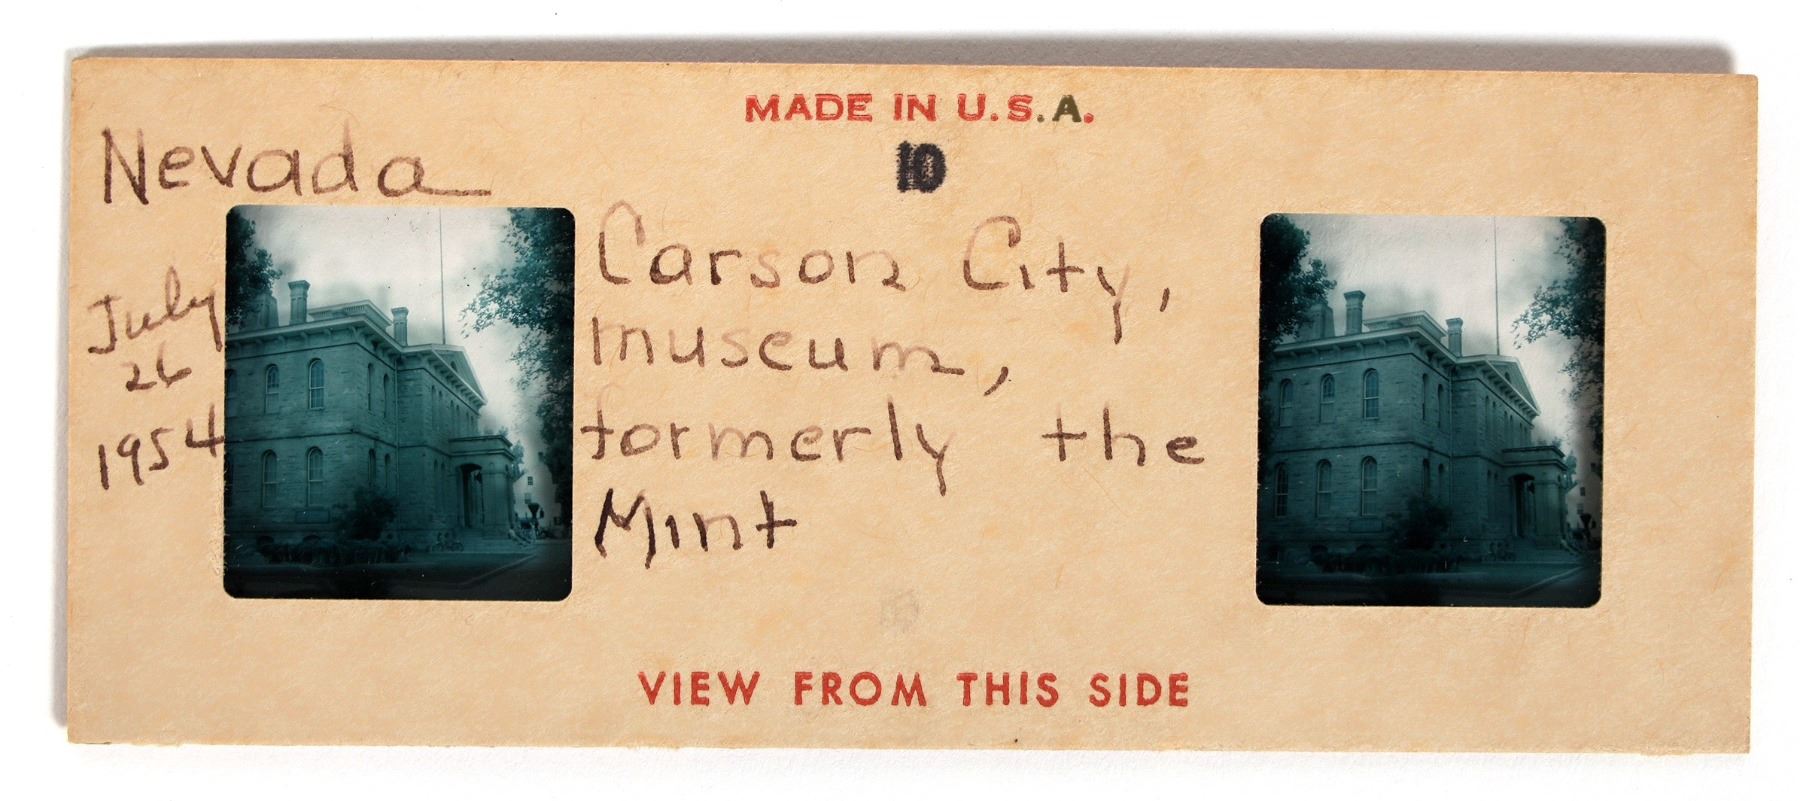 MADE IN U.S.A.
10
Nevada
July
26
1954
Carson City,
museum,
formerly the
Mint
VIEW FROM THIS SIDE